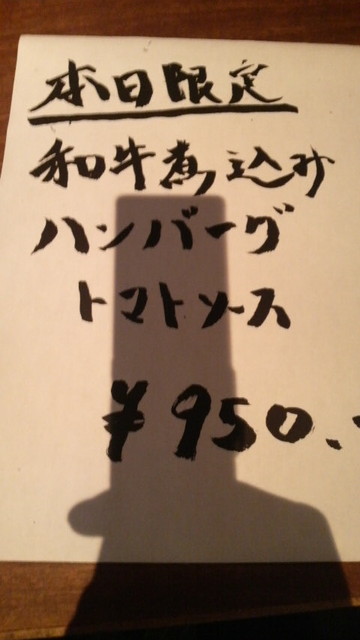 本日限定
和牛煮込み
ハンバーグ
トマトソース
¥950.-